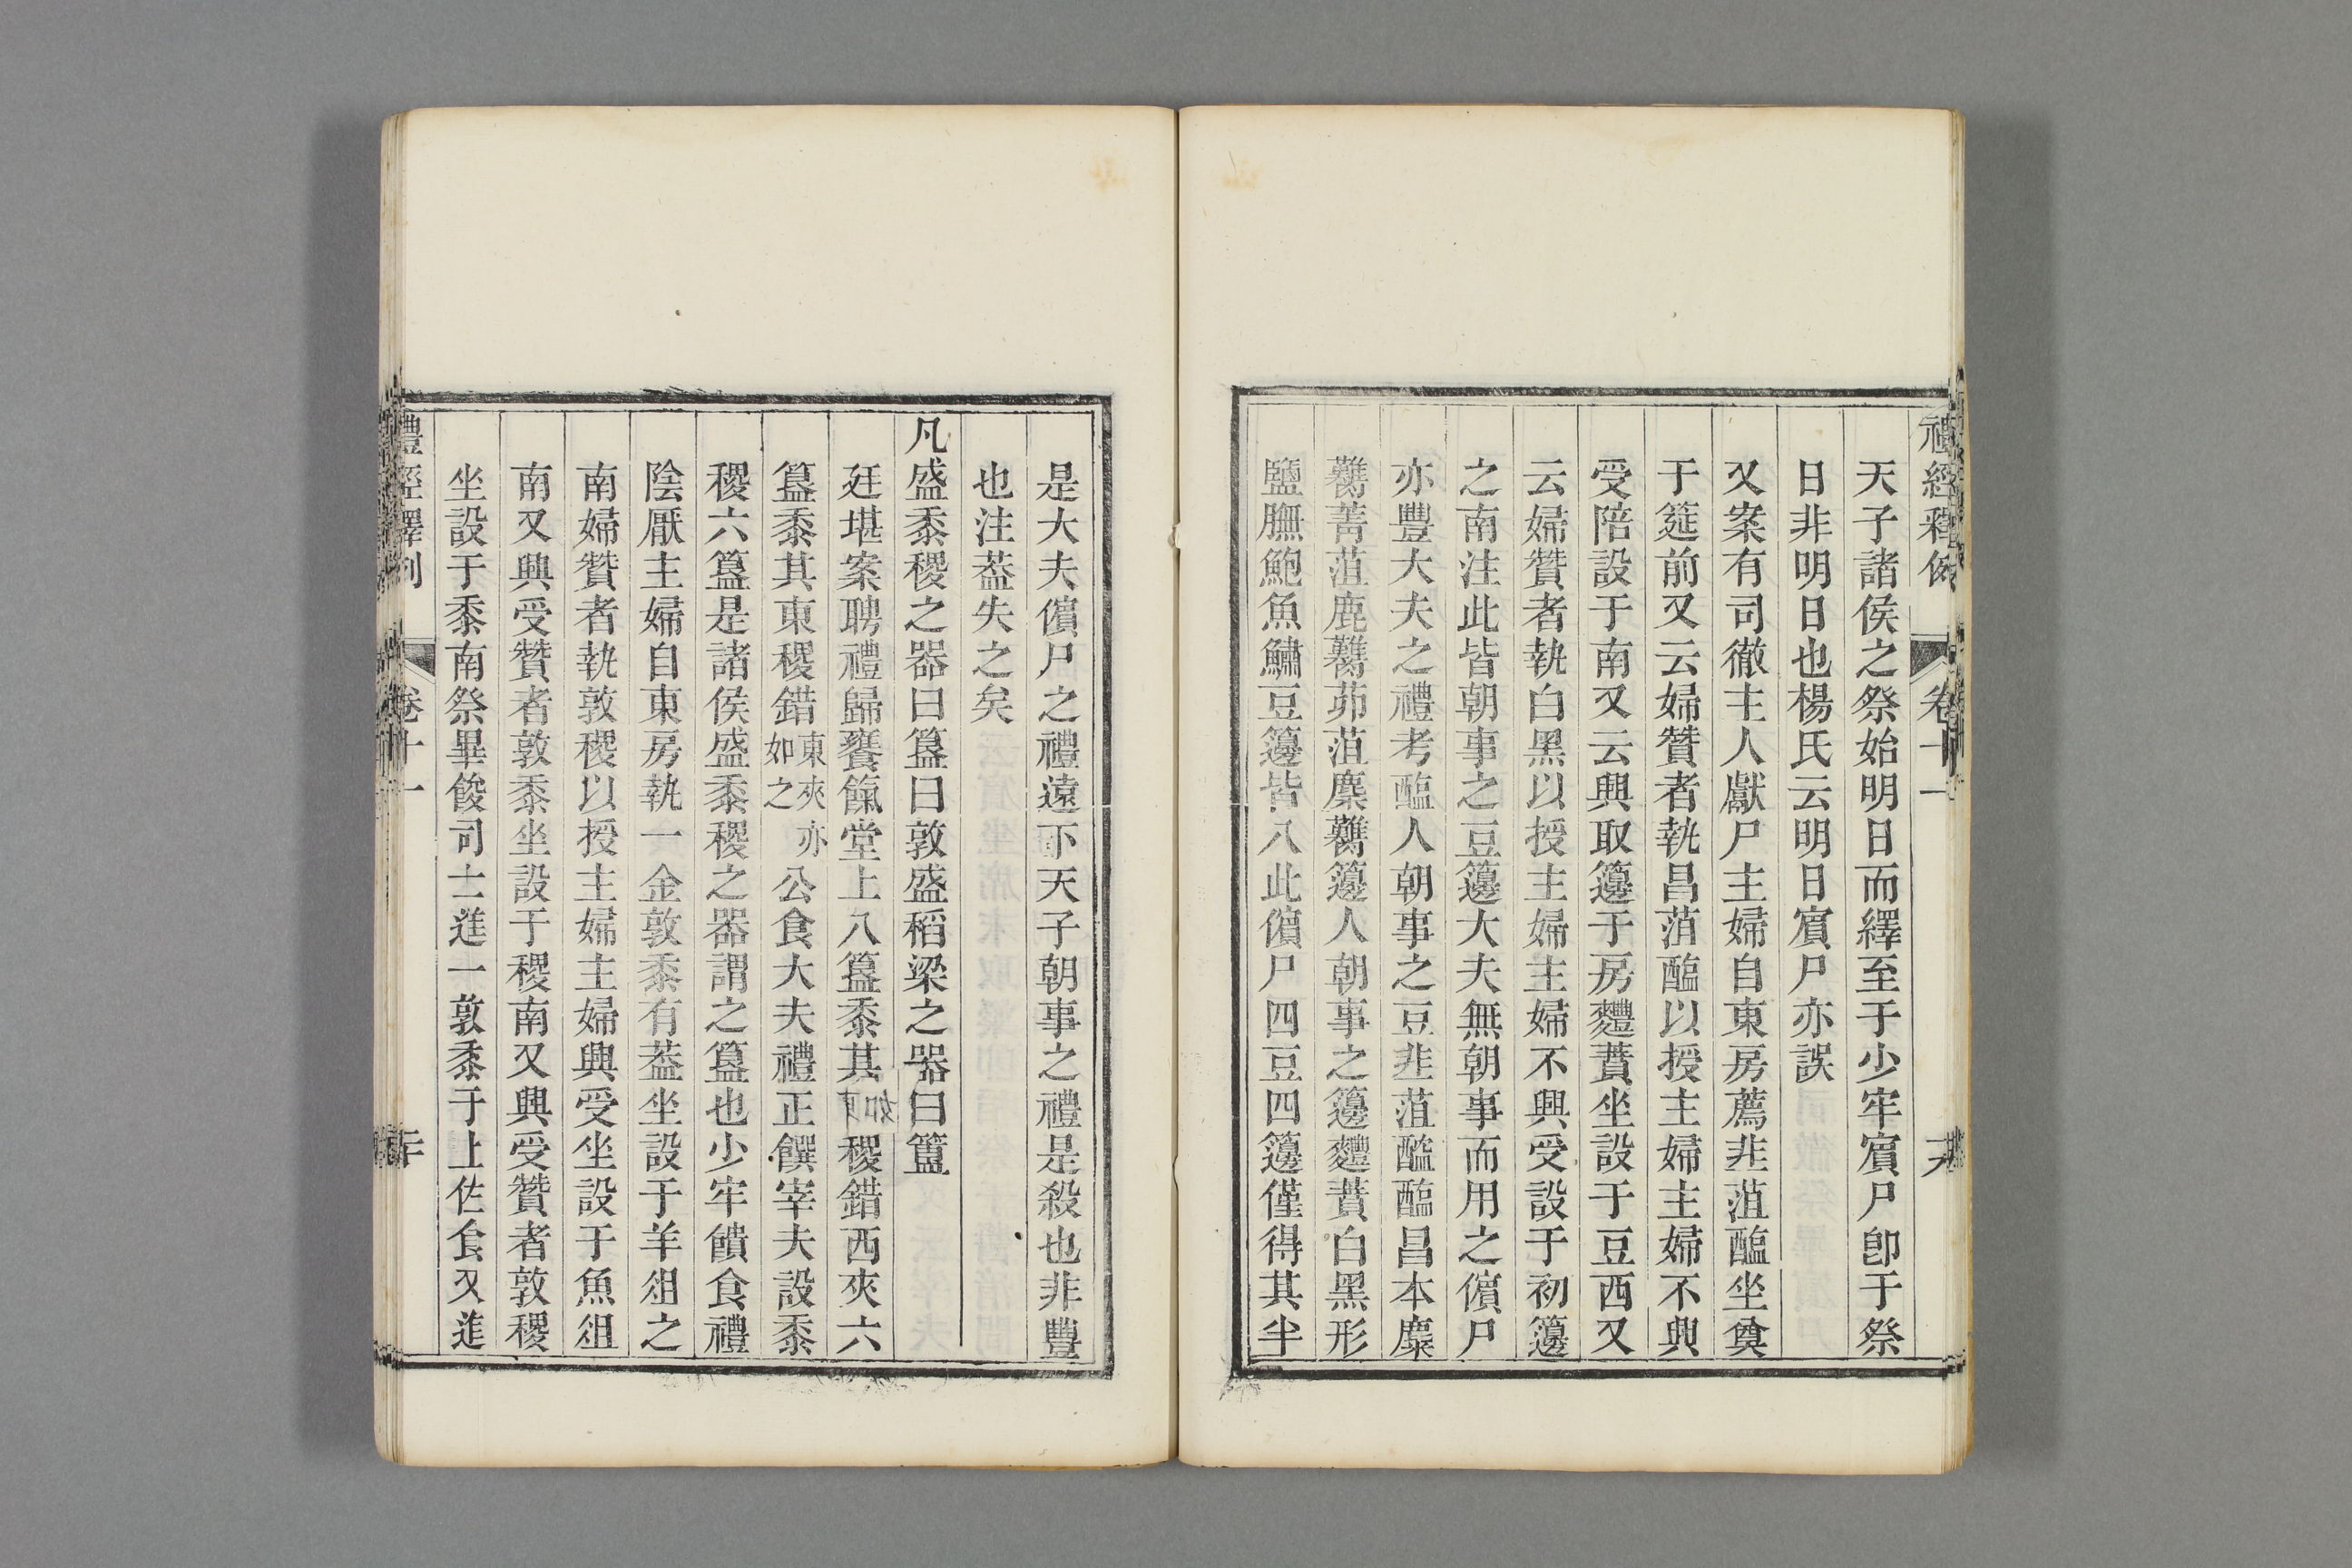 禮經釋例 卷十一
天子諸侯之祭始明日而繹至于少牢賓尸卽于祭
日非明日也楊氏云明日賓尸亦誤
又案有司徹主人獻尸主婦自東房薦韭菹醢坐奠
于筵前又云婦贊者執昌菹醢以授主婦主婦不興
受陪設于南又云興取籩于房麷蕡坐設于豆西又
云婦贊者執白黑以授主婦主婦不興受設于初籩
之南注此皆朝事之豆籩大夫無朝事而用之儐尸
亦豐大夫之禮考醢人朝事之豆韭菹醯醢昌本麋
臡菁菹鹿臡茆菹麋臡籩人朝事之籩麷蕡白黑形
鹽膴鮑魚鱐豆籩皆八此儐尸四豆四籩僅得其半
是大夫儐尸之禮遠下天子朝事之禮是殺也非豐
也注葢失之矣
凡盛黍稷之器曰簋曰敦盛稻梁之器曰簠
廷堪案聘禮歸饔餼堂上八簋黍其稷錯西夾六
簋黍其東稷錯東夾亦如之公食大夫禮正饌宰夫設黍
稷六簋是諸侯盛黍稷之器謂之簋也少牢饋食禮
陰厭主婦自東房執一金敦黍有葢坐設于羊俎之
南婦贊者執敦稷以授主婦主婦興受坐設于魚俎
南又興受贊者敦黍坐設于稷南又興受贊者敦稷
坐設于黍南祭畢餕司士進一敦黍于上佐食又進
禮經釋例 卷十一